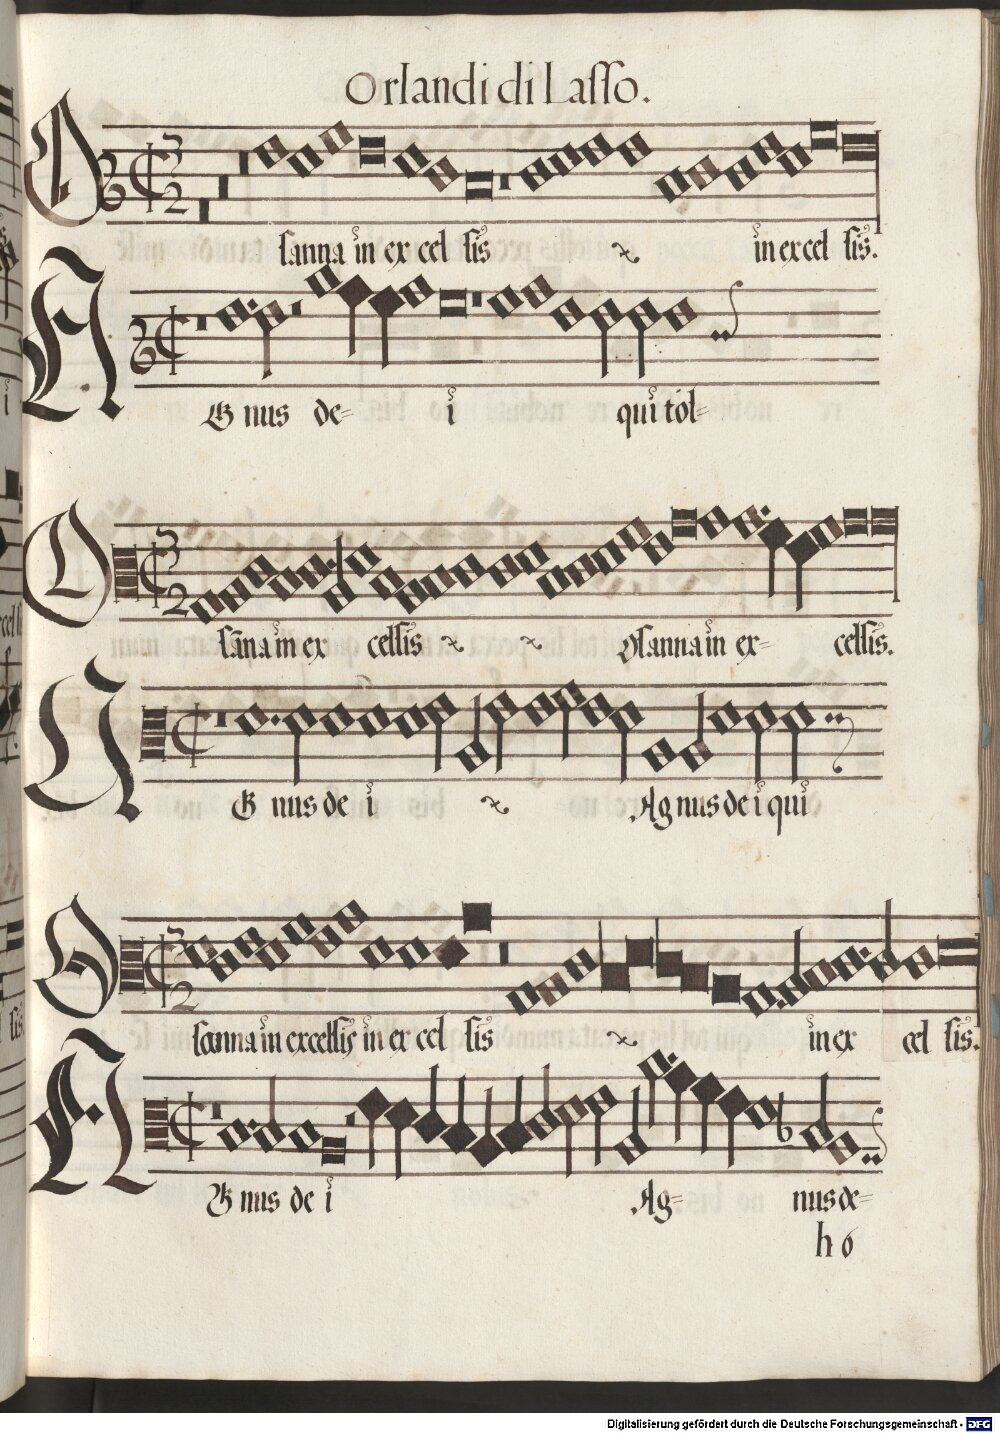 Orlandi di Lasso.
O sanna in ex cel sis in ex cel sis.
A G nus de= i qui tol=
O sana in ex celsis Osanna in ex= celsis.
A G nus de i Ag nus de i qui
O sanna in excelsis in ex cel sis in ex cel sis.
A G nus de i Ag= nus de=
h 6
Digitalisierung gefördert durch die Deutsche Forschungsgemeinschaft - DFG